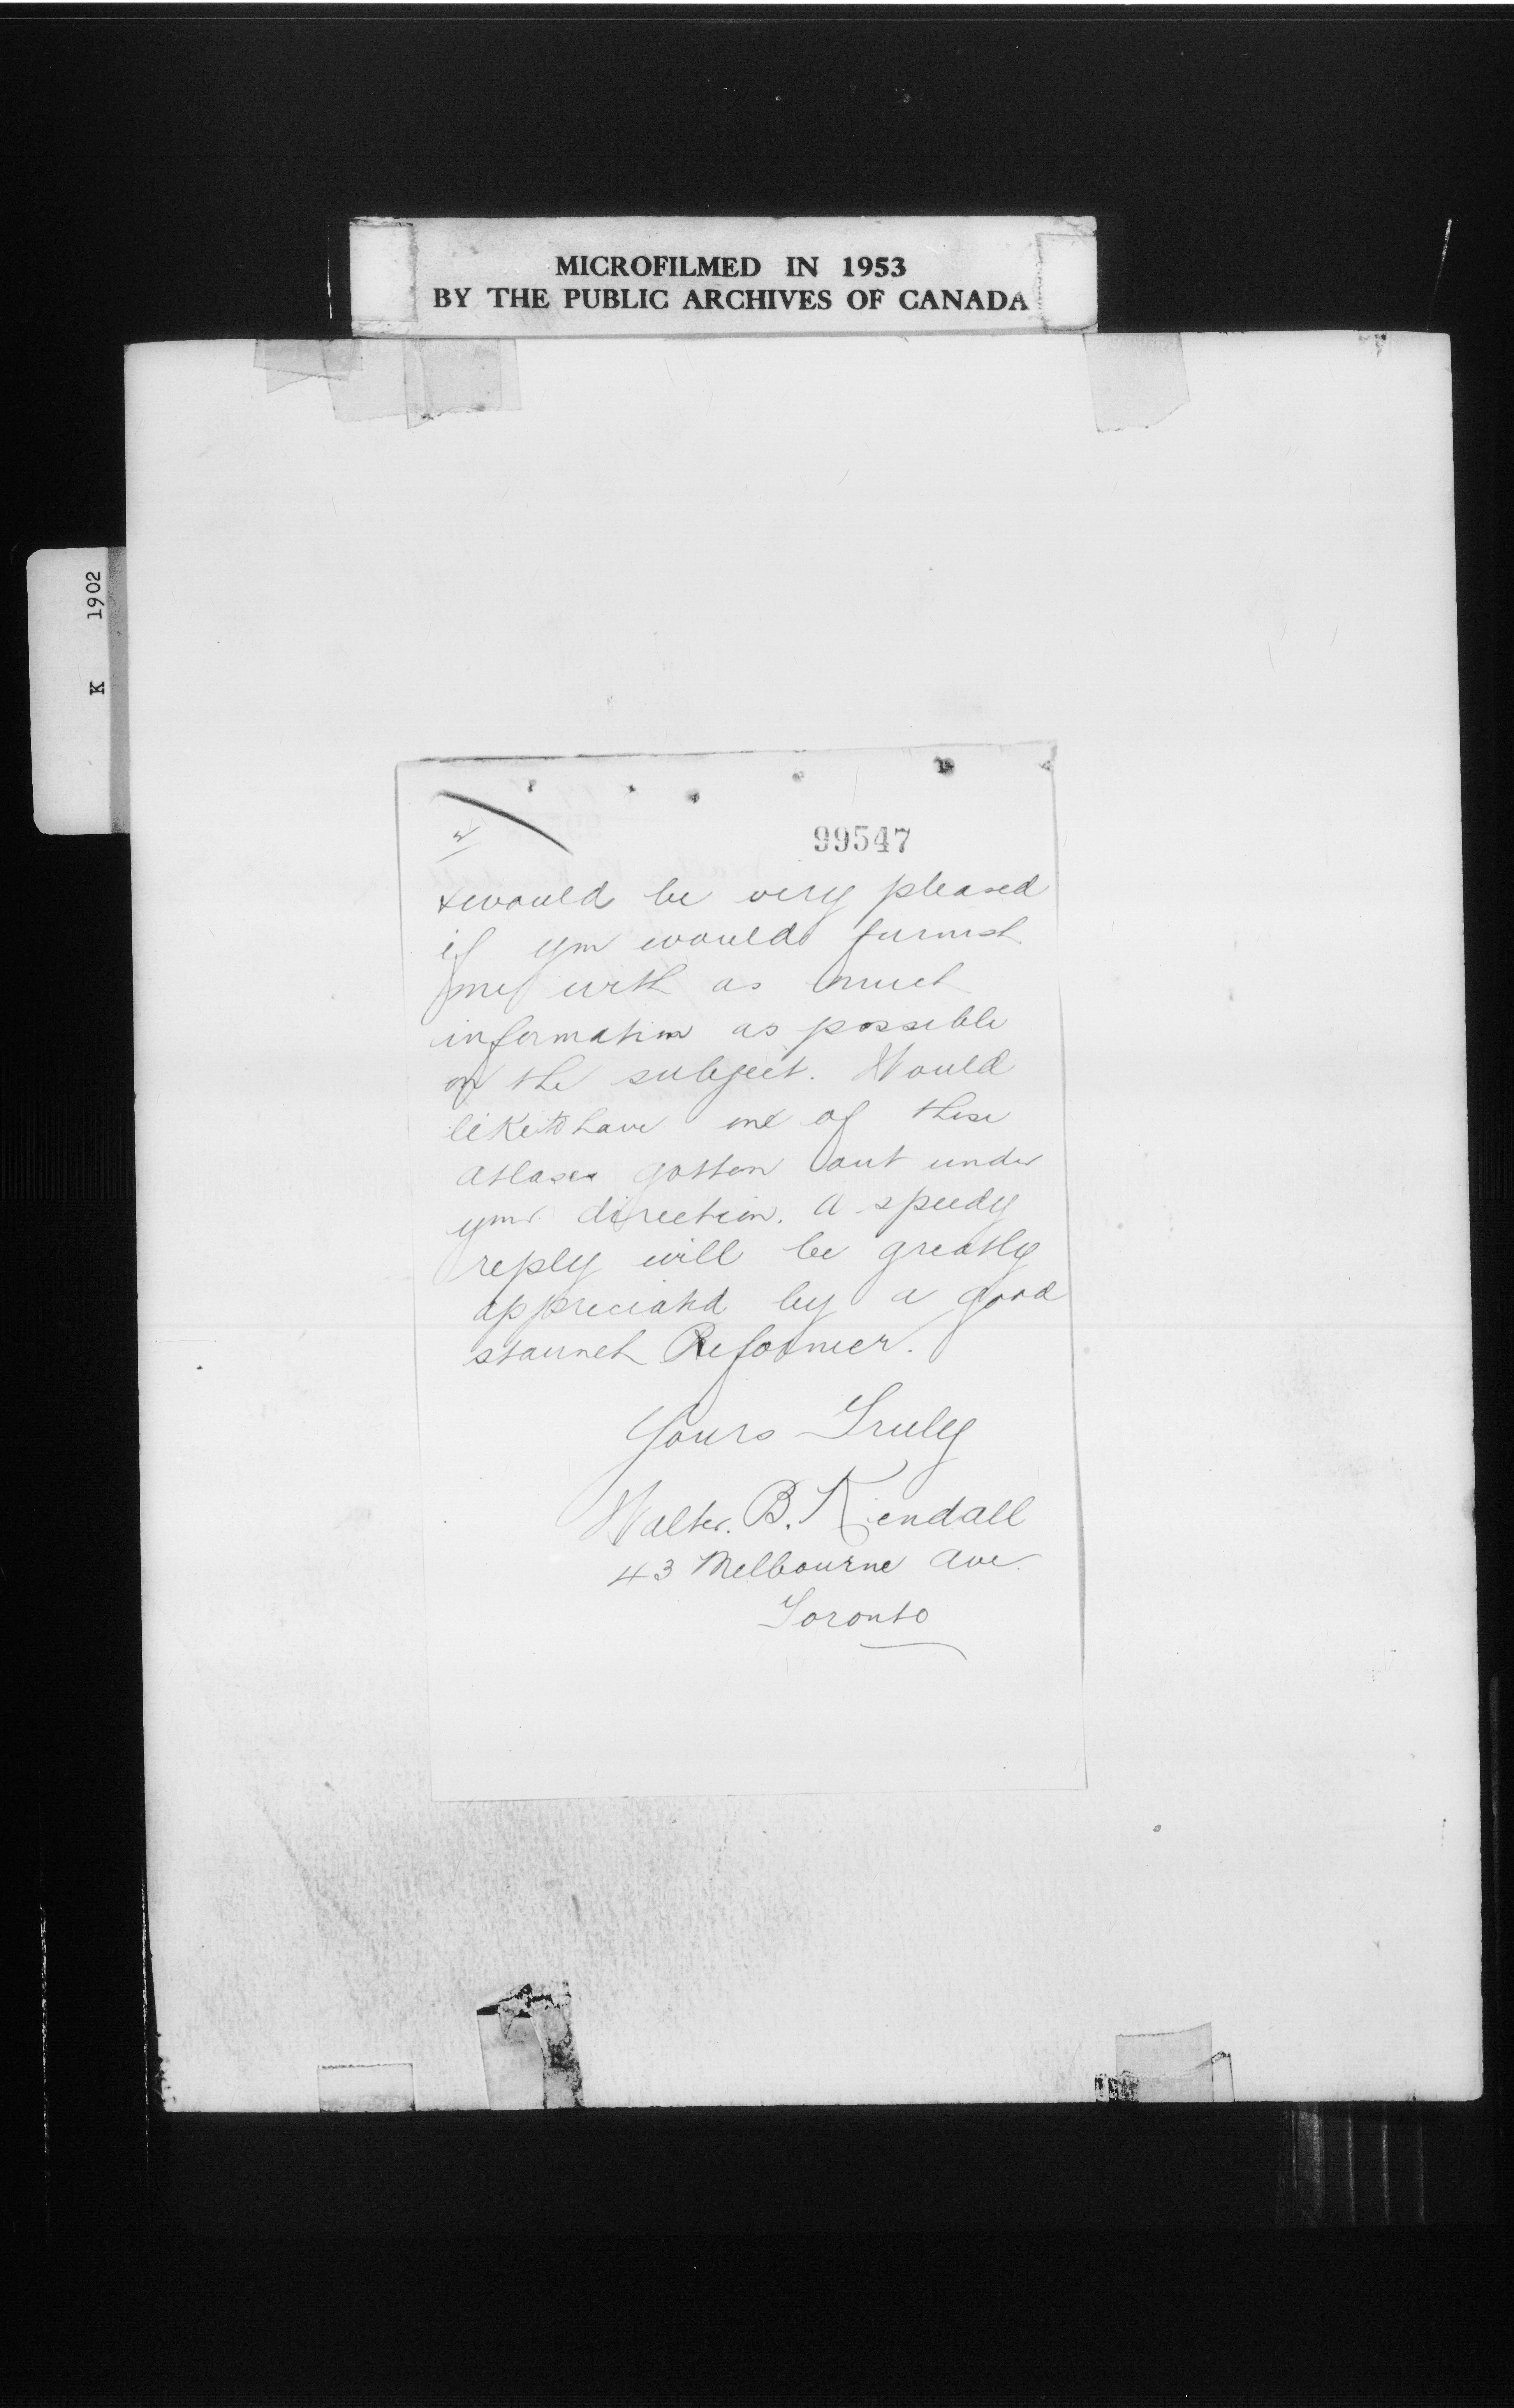 MICROFILMED IN 1953
BY THE PUBLIC ARCHIVES OF CANADA
K 1902
99547
2/
& would be very pleased
if you would furnish
me with as much
information as possible
on the subject. Would
like to have one of these
atlases gotten out under
your direction. A speedy
reply will be greatly
appreciated by a good
staunch Reformer.
Yours Truly
Walter. B. Kendall
43 Melbourne Ave.
Toronto